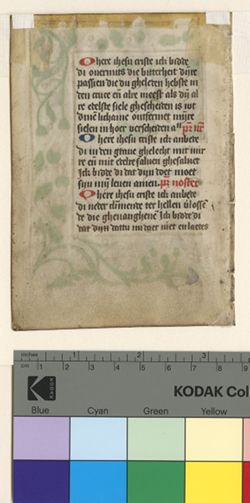 O here ihesu criste ich bidde
di ouermits die bitterheit dijre
passien die du gheleden hebste in
den cruce en alre meest als dij al
re edelste siele ghescheiden is wt
dinē lichame ontfermet mijre
sielen in hoer verscheiden
O here ihesu criste ich anbede
di in den graue gheleeht mit mir
re en mit edelre saluen ghesaluet
Ich bidde di dat dijn doet moet
sijn mij leuen amen. pr noster
O here ihesu criste ich anbede
di neder climmende ter hellen
de die gheuanghenē Ich bidde di
dat dijn niet en laetes
inches 1 2 3
cm 1 2 3 4 5 6 7 8
KODAK Col
Blue Cyan Green Yellow